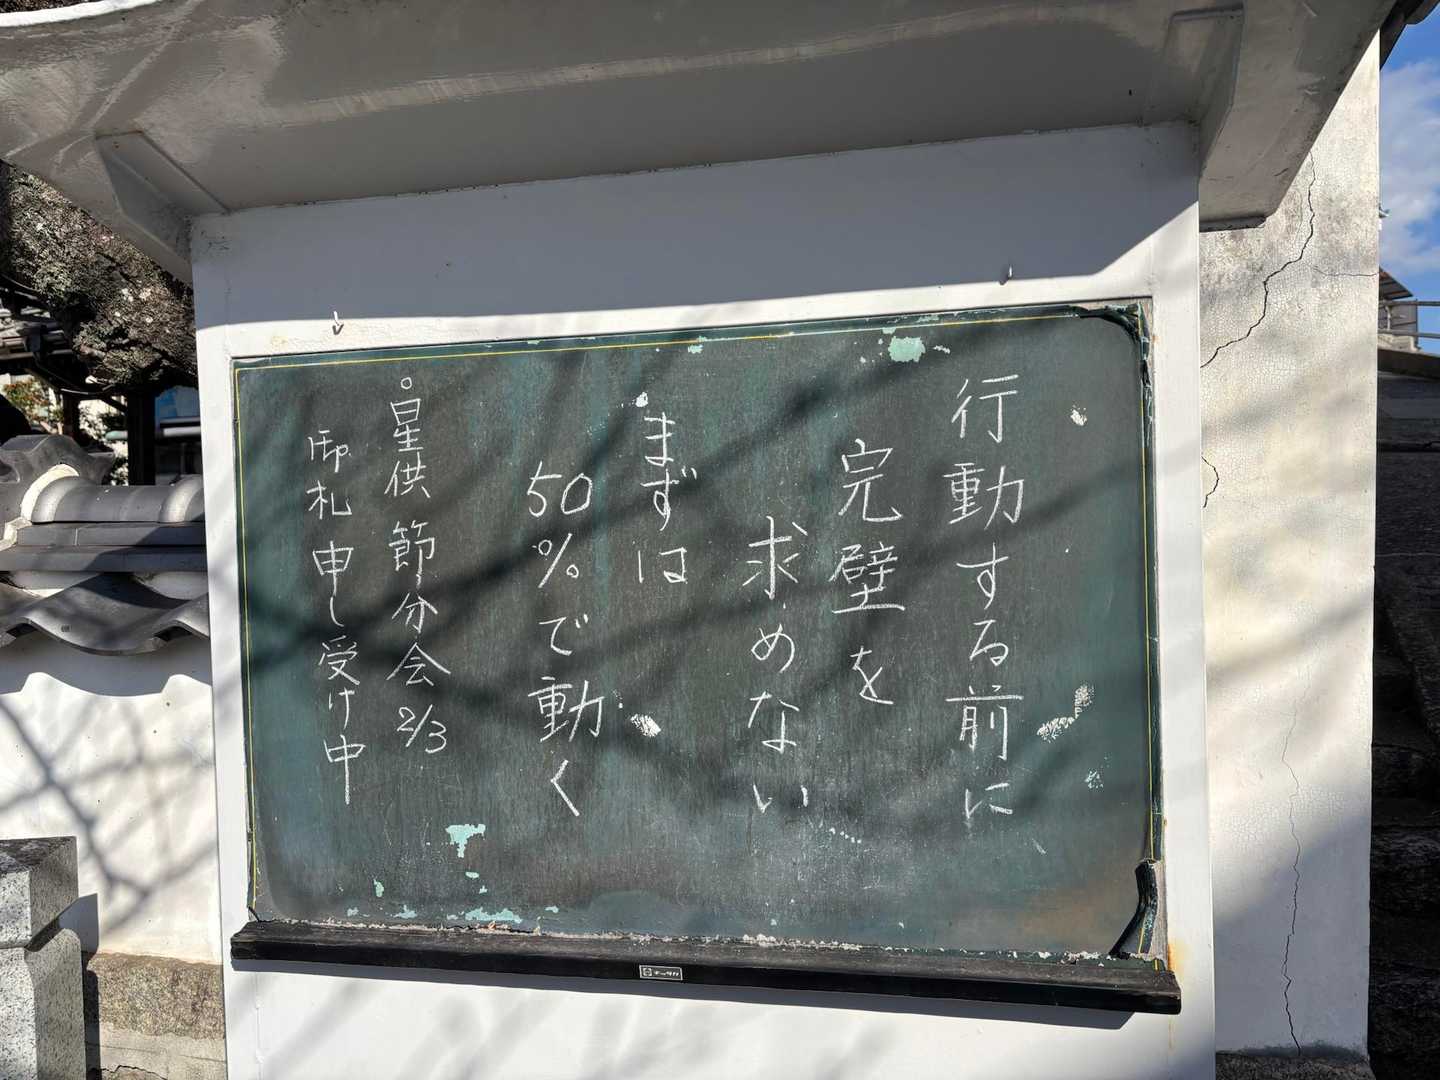 行動する前に
完璧を
求めない
まずは
50%で動く
○星供 節分会 2/3
御札 申し受け中